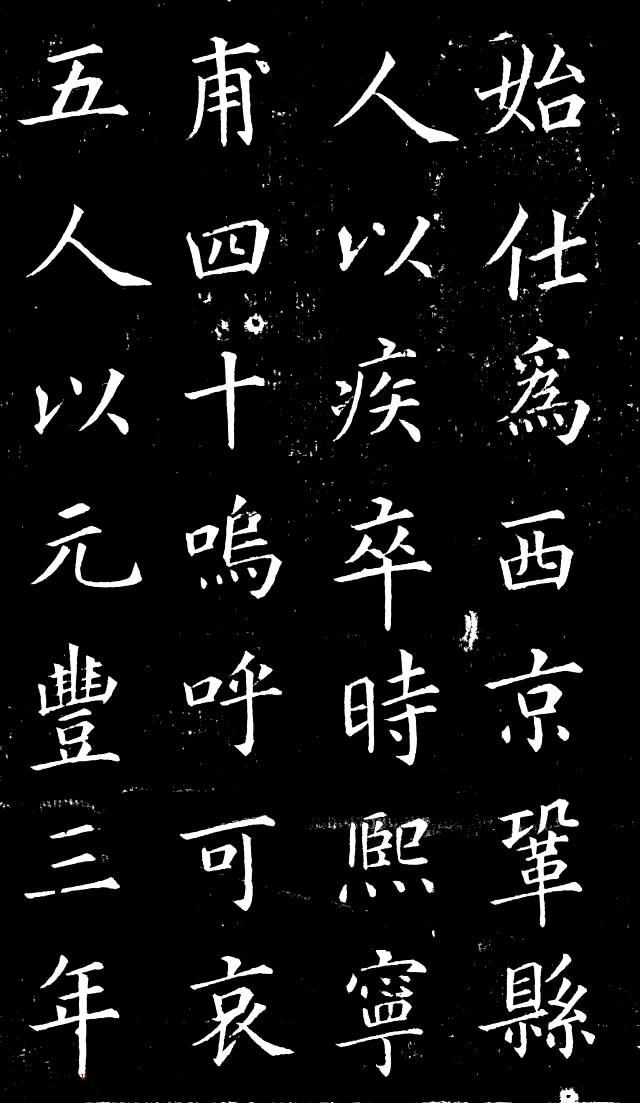 始仕爲西京鞏縣
人以疾卒時熙寧
甫四十嗚呼可哀
五人以元豐三年